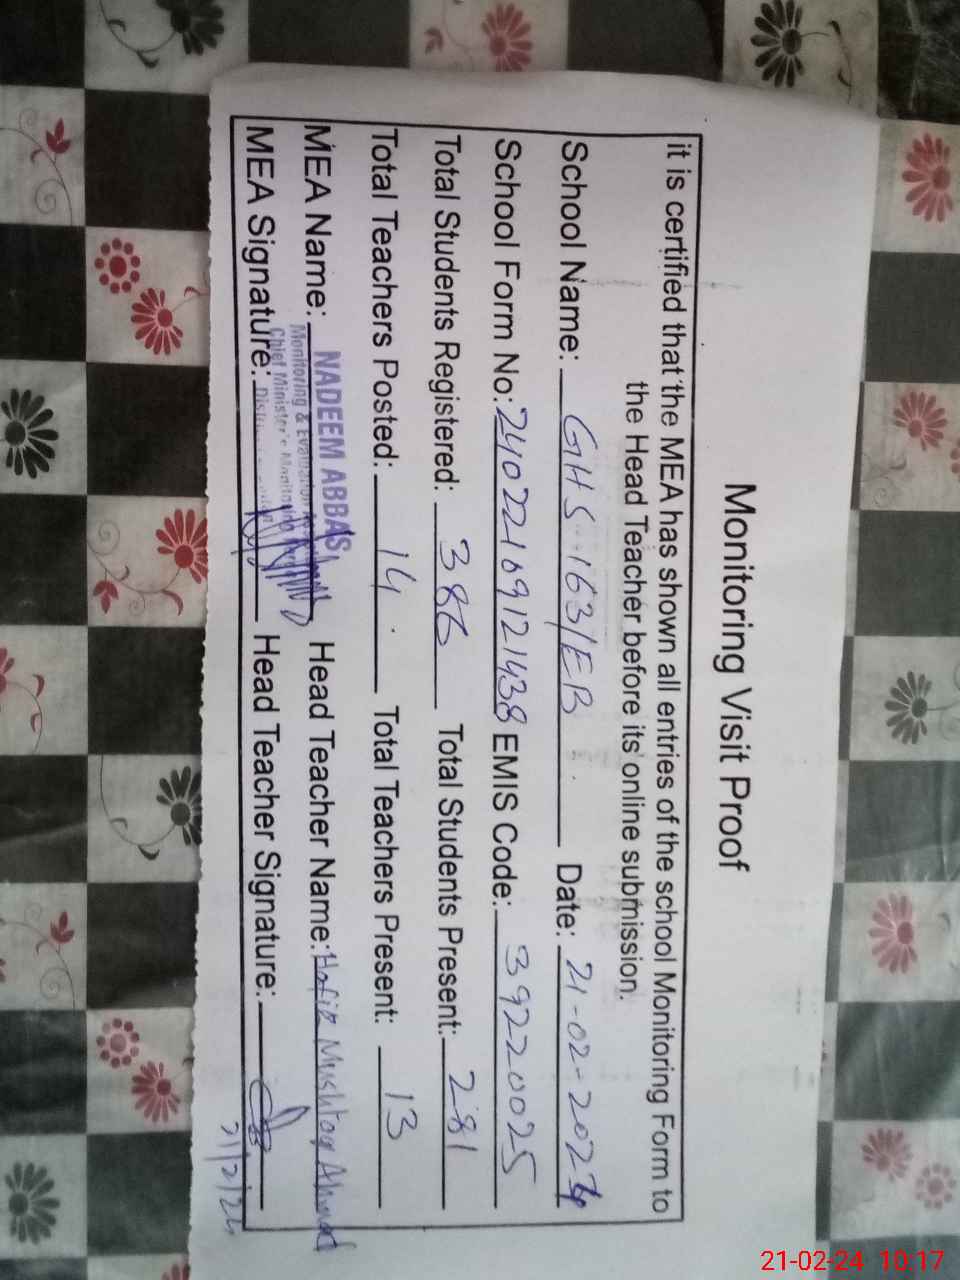 Monitoring Visit Proof
it is certified that the MEA has shown all entries of the school Monitoring Form to
the Head Teacher before its online submission.
School Name: GHS 163/EB Date: 21-02-2024
School Form No: 24022109121438 EMIS Code: 39220025
Total Students Registered: 386 Total Students Present: 281
Total Teachers Posted: 14 Total Teachers Present: 13
MEA Name: NADEEM ABBAS Head Teacher Name: Hafiz Mushtaq Ahmad
Monitoring & Evaluation
Chief Minister's Monitoring
MEA Signature: Head Teacher Signature:
21/2/24
21-02-24 10:17